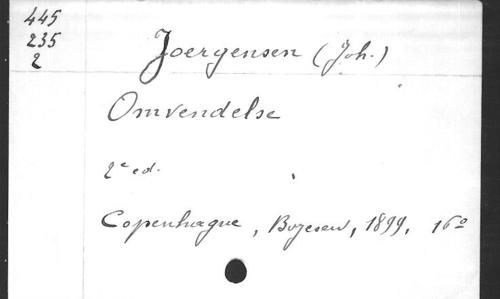 445
235
2
Joergensen (Joh.)
Omvendelse
2e ed.
Copenhague, Bojesen, 1899, 16o